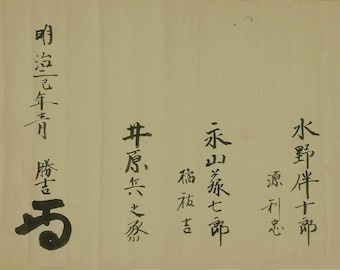 水野伴十郎
源利忠
永山藤七郎
橘祐吉
井原兵之丞
勝吉
明治二己巳年二月